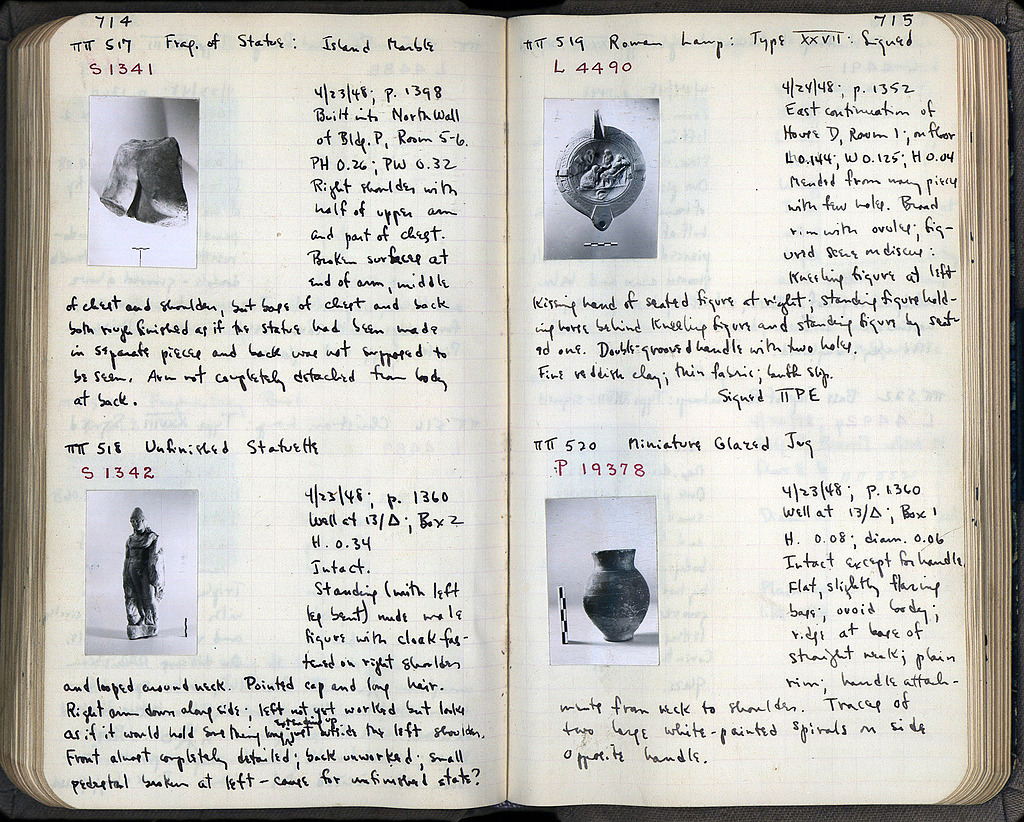 714
ΠΠ 517 Frag. of Statue: Island Marble
S 1341
4/23/48; p. 1398
Built into North Wall
of Bldg. P, Room 5-6.
PH 0.26; PW 0.32
Right shoulder with
half of upper arm
and part of chest.
Broken surfaces at
end of arm, middle
of chest and shoulder, but base of chest and back
both rough finished as if the statue had been made
in separate pieces and back was not supposed to
be seen. Arm not completely detached from body
at back.
ΠΠ 518 Unfinished Statuette
S 1342
4/23/48; p. 1360
Well at 13/Δ; Box 2
H. 0.34
Intact.
Standing (with left
leg bent) nude male
figure with cloak fas-
tened on right shoulder
and looped around neck. Pointed cap and long hair.
Right arm down along side; left not yet worked but looks
extending up
as if it would hold something long just outside the left shoulder.
Front almost completely detailed; back unworked; small
pedestal broken at left - cause for unfinished state?
715
ΠΠ 519 Roman Lamp: Type XXVII: Signed
L 4490
4/24/48; p. 1352
East continuation of
House D, Room 1; on floor
L 0.144; W 0.125; H 0.04
Mended from many pieces
with few holes. Broad
rim with ovules; fig-
ured scene on discus:
Kneeling figure at left
kissing hand of seated figure at right; standing figure hold-
ing horse behind kneeling figure and standing figure by seat-
ed one. Double-grooved handle with two holes.
Fine reddish clay; thin fabric; buff slip.
Signed ΠΡΕ
ΠΠ 520 Miniature Glazed Jug
P 19378
4/23/48; p. 1360
Well at 13/Δ; Box 1
H. 0.08; diam. 0.06
Intact except for handle.
Flat, slightly flaring
base; ovoid body;
ridge at base of
straight neck; plain
rim; handle attach-
ments from neck to shoulder. Traces of
two large white-painted spirals on side
opposite handle.